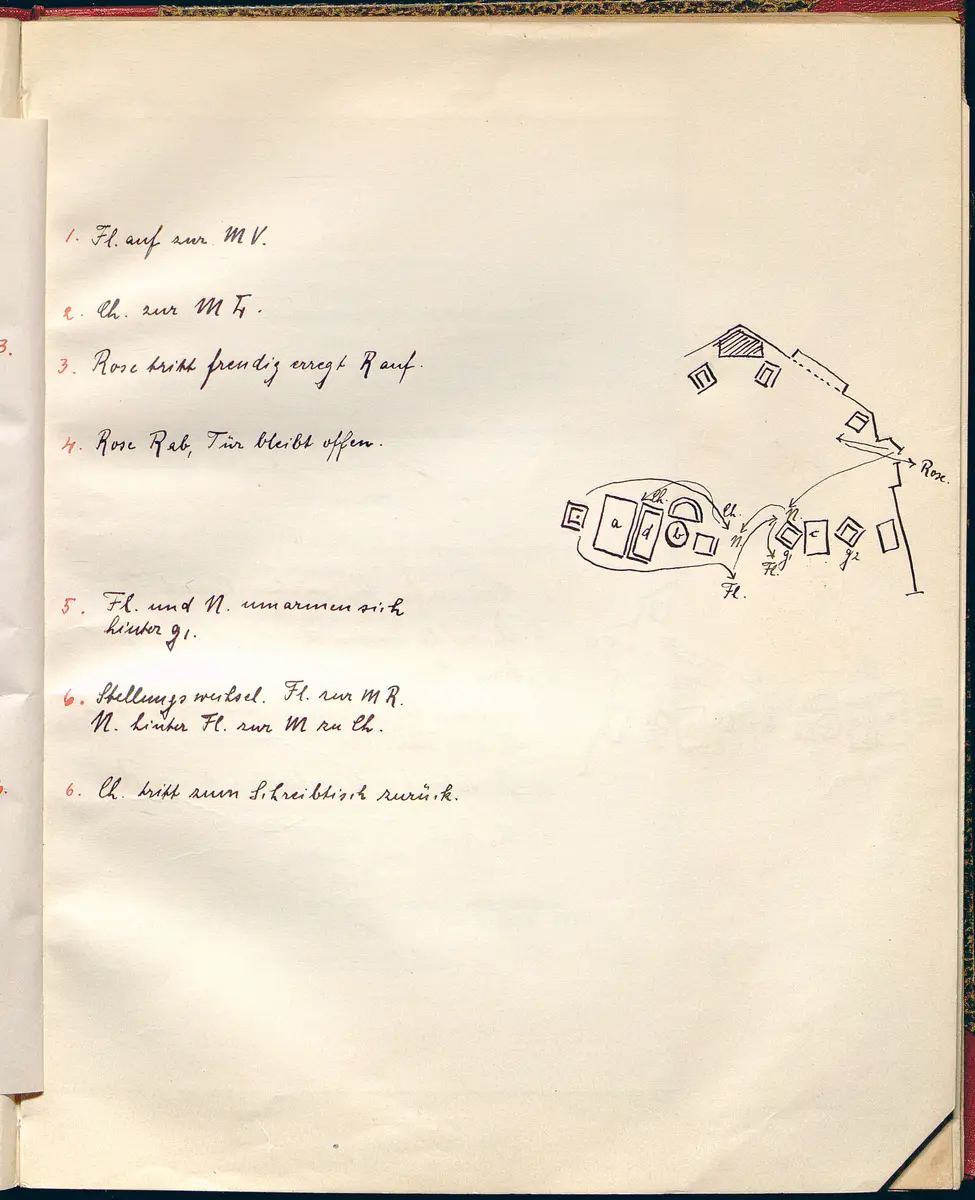 1. Fl. auf zur MV.
2. Ch. zur M
3.
3. Rose tritt freudig erregt R auf.
4. Rose R ab, Tür bleibt offen.
Rose.
Ch.
a
d
b
Ch.
N.
N.
g1
c
g2
Fl.
Fl.
5. Fl. und N. umarmen sich
hinter g1.
6. Stellungswechsel. Fl. zur MR.
N. hinter Fl. zur M zu Ch.
6. Ch. tritt zum Schreibtisch zurück.